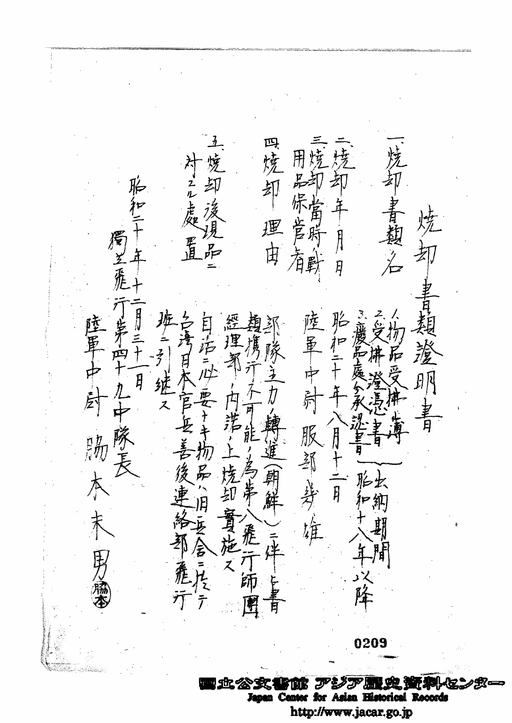 焼却書類證明書
一、焼却書類名
1.物品受拂簿
2.受拂證憑書
3.廢品處分承認書
出納期間
昭和十八年以降
二、焼却年月日
昭和二十年八月十二日
三、焼却當時ノ戰
用品保管者
陸軍中尉 服部 雄
四、焼却理由
部隊主力ノ轉進(朝鮮)ニ伴ヒ書
類携行不可能ノ為第八飛行師團
經理部ノ内諾ノ上焼却實施ス
五、焼却後現品ニ
對スル處置
自活ニ必要ナル物品ハ旧兵舎ニ於テ
台湾日本官兵善後連絡部飛行
班ニ引継ス
昭和二十年十二月三十一日
獨立飛行第四十九中隊長
陸軍中尉 脇本末男
脇本
0209
国立公文書館 アジア歴史資料センター
Japan Center for Asian Historical Records
http://www.jacar.go.jp